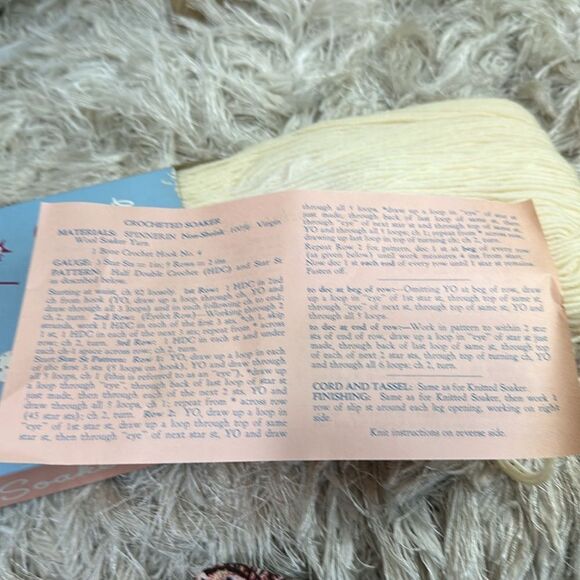 CROCHETED SOAKER
MATERIALS: SPINNERIN Non-Shrink 100% Virgin
Wool Soaker Yarn.
1 Bone Crochet Hook No. 4
GAUGE: 3 Star Sts — 1 in.; 5 Rows — 2 ins.
PATTERN: Half Double Crochet (HDC) and Star St
as described below.
Starting at waist, ch 92 loosely. 1st Row: 1 HDC in 2nd
ch from hook (YO, draw up a loop through ch, YO and
draw through all 3 loops) and in each following ch; ch
2, turn. 2nd Row: (Eyelet Row) — Working * ch 2, skip
1 st, 1 HDC in each of the next 2 sts; repeat from * across
row; ch 2, turn. 3rd Row: 1 HDC in each st and under
each ch-1 space across row; ch 2, turn.
Start Star St Pattern: Row 1: YO, draw up a loop in each
of first 3 sts (5 loops on hook), YO and draw through
all 5 loops, ch 1 (this is referred to as "eye"), * draw up
a loop through "eye", through back of last loop of star st
just made, then through each of the next 2 sts, YO and
draw through all 5 loops, ch 1, repeat from *
(45 star sts); ch 2, turn. Row 2: YO, draw up a loop in
"eye" of 1st star st, draw up a loop through top of same
star st, then through "eye" of next star st, YO and draw
through all 5 loops, *draw up a loop in "eye" of star st
just made, through back of last loop of same star st, in
through "eye" of next star st, through top of same star st,
YO and through all 5 loops;
drawing up last loop in top of turning ch; ch 2, turn.
Repeat Row 2 for pattern, dec 1 st at beg of
(as given below) until work measures 4 ins from start,
dec 1 st each end of every row until 1 star st
Fasten off.
to dec at beg of row:—Omitting YO at beg of row, draw
up a loop in "eye" of star st, through top of same st,
through "eye" of next star st, through top of same st, YO
and through
to dec at end of row:—Work in pattern to within 2 star
sts of end of row, draw up a loop in "eye" of star st just
made, through back of last loop of same star st, in "eye"
of each of next 2 star sts, through top of turning ch, YO
and through all 6 loops; ch 2, turn.
CORD AND TASSEL: Same as for Knitted Soaker.
FINISHING: Same as for Knitted Soaker, then work 1
row of slip st around each leg opening, working on right
side.
Knit instructions on reverse side.
Soake